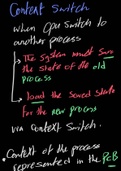 Context Switch
when CPU switch to
another process
→ The System must save
the state of the old
process
→ load the saved state
for the new process
via context switch.
Context of the process
represented in the PCB